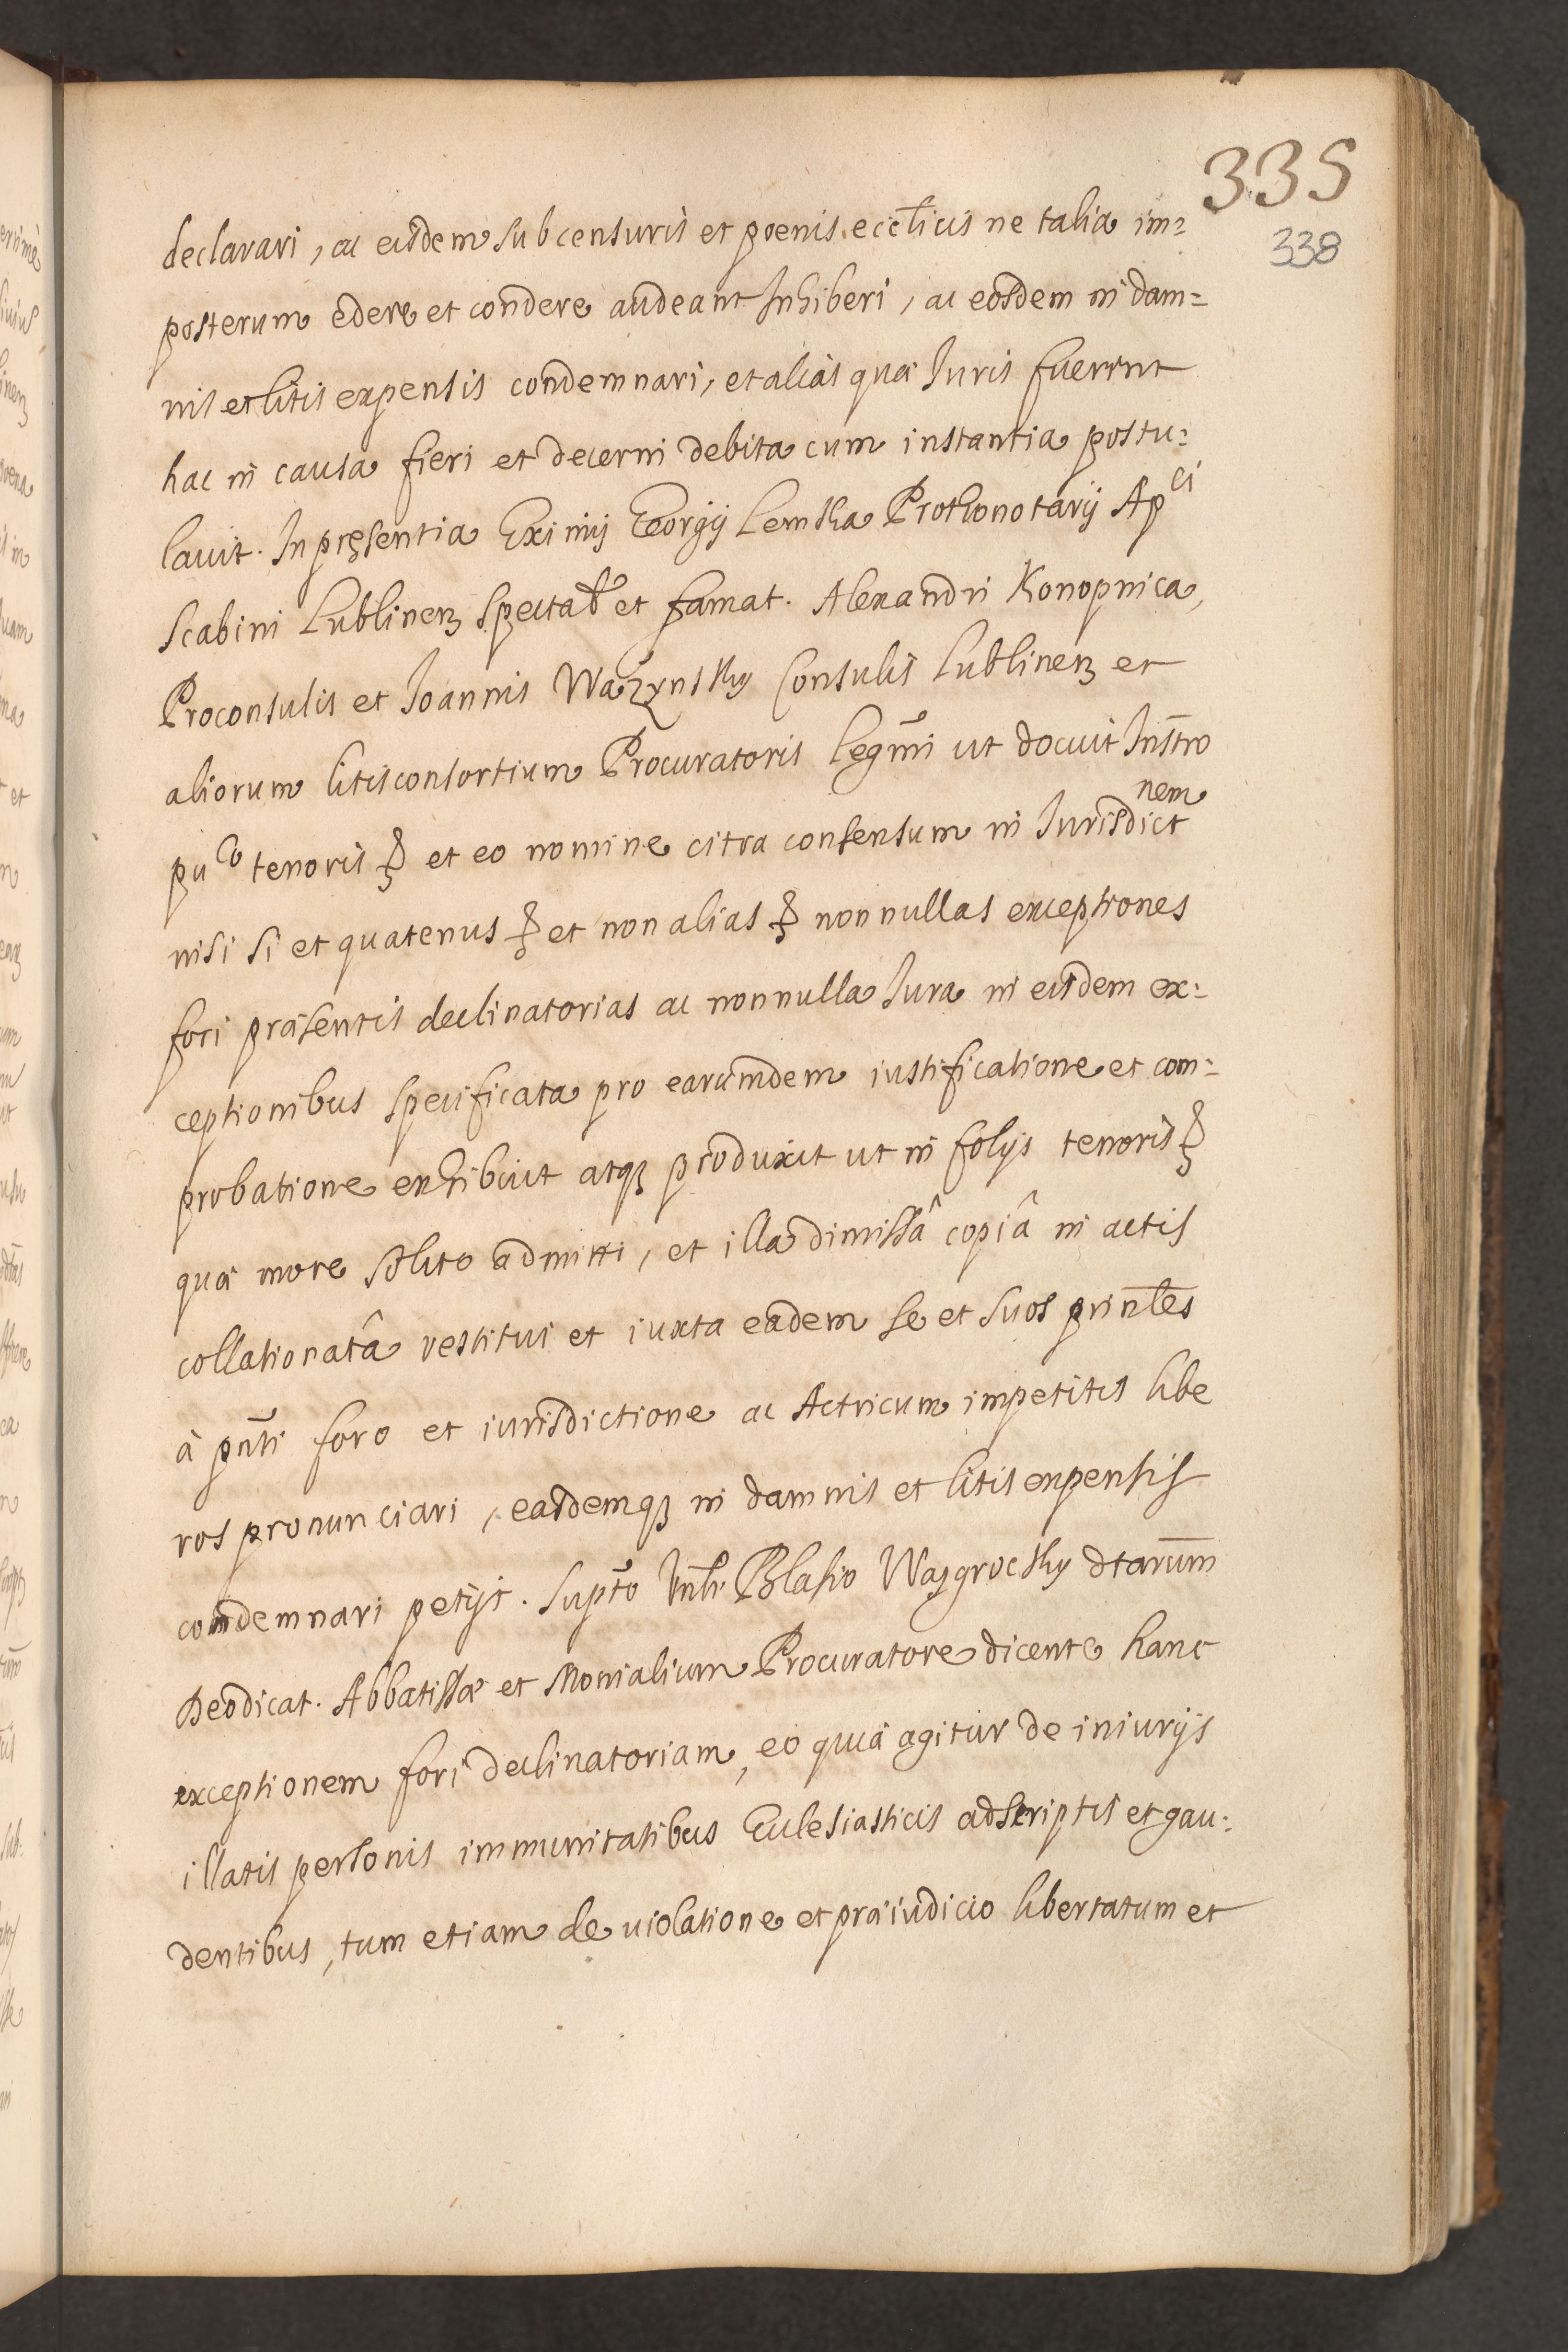 335
338
declarari, ac eisdem sub censuris et poenis eccl̄icis ne talia im=
posterum edere et condere audeant Inhiberi, ac eosdem in dam=
nis et litis expensis condemnari, et alias quæ Iuris fuerint
hac in causa fieri et decerni debita cum instantia postu=
lavit. In pręsentia Eximij Georgij Lemka Prothonotarij Ap^ci
Scabini Lublineȝ Spectab et famat. Alexandri Konopnica,
Proconsulis et Joannis Wazynsky Consulis Lublineȝ et
aliorum litisconsortium Procuratoris Legm̄i ut docuit Inst̄ro
pu^co tenoris et eo nomine citra consensum in Jurisdict^nem
nisi si et quatenus et non alias nonnullas exceptiones
fori præsentis declinatorias ac nonnulla Iura in eisdem ex=
ceptionibus specificata pro earumdem iustificatione et com=
probatione exhibuit atqȝ produxit ut in folijs tenoris
quæ more solito admitti, et illa dimissâ copiâ in actis
collationatâ restitui et iuxta eadem se et suos prin̄les
à pn̄ti foro et iurisdictione ac Actricum impetitis libe
ros pronunciari, easdemqȝ in damnis et litis expensis
condemnari petijt. Supt̄o Blasio Waygrocsky dtarum̄
Deodicat. Abbatissæ et Monialium Procuratore dicente hanc
exceptionem fori declinatoriam, eo quia agitur de iniurijs
illatis personis immunitatibus Ecclesiasticis adscriptis et gau=
dentibus, tum etiam de violatione et præiudicio libertatum et